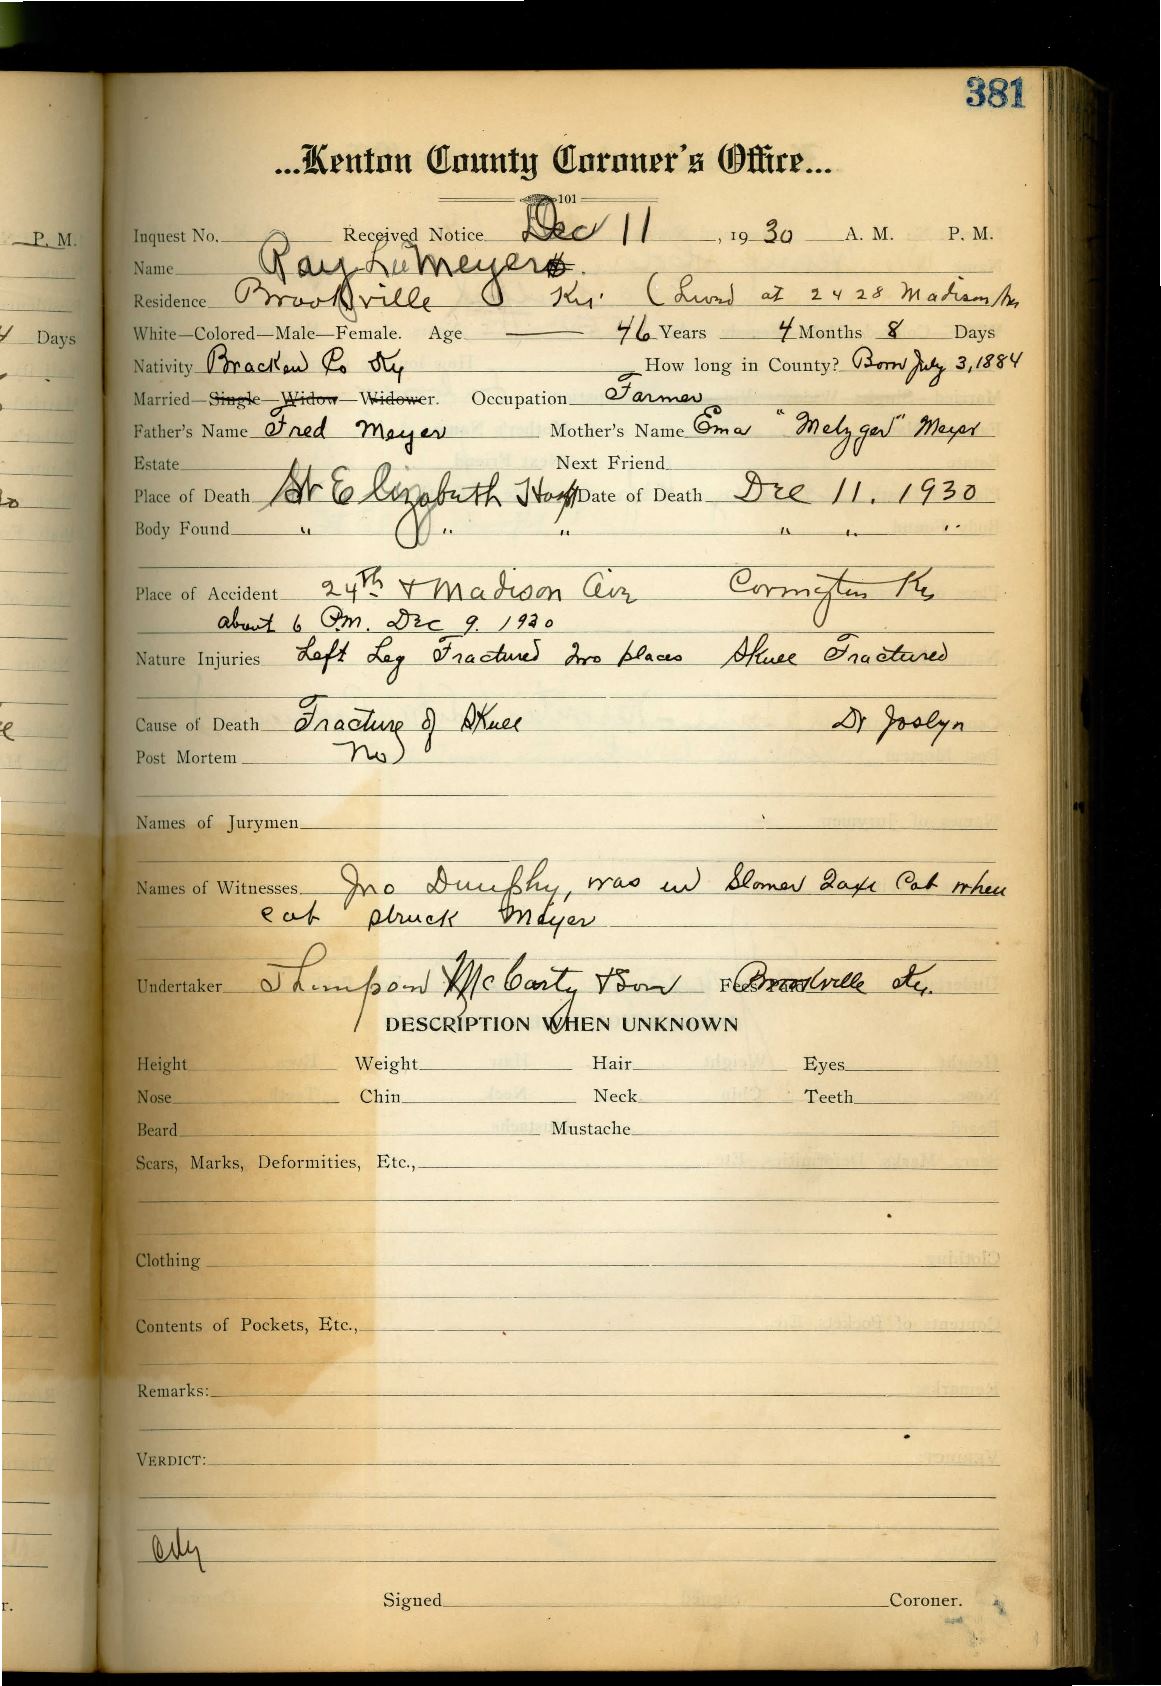 381
...Kenton County Coroner's Office...
101
P. M.
Inquest No. Received Notice Dec 11, 1930 A. M. P. M.
Name Ray Lee Meyer
Residence Brooksville Ky. (Lived at 2428 Madison Av
Days
White—Colored—Male—Female. Age 46 Years 4 Months 8 Days
Nativity Bracken Co Ky How long in County? Born July 3, 1884
Married—Single—Widow—Widower. Occupation Farmer
Father's Name Fred Meyer Mother's Name Ema "Metzger" Meyer
Estate Next Friend
Place of Death St Elizabeth Hosp Date of Death Dec 11. 1930
Body Found " " " " " "
Place of Accident 24th & Madison Ave Covington Ky
about 6 P.m. Dec 9. 1930
Nature Injuries Left Leg Fractured two places Skull Fractured
Cause of Death Fracture of Skull Dr Joslyn
Post Mortem No
Names of Jurymen
Names of Witnesses Jno Dunphy, was in Taxi Cab when
cab struck Meyer
Undertaker Thompson McCarty & Son Fees Paid Brooksville Ky.
DESCRIPTION WHEN UNKNOWN
Height Weight Hair Eyes
Nose Chin Neck Teeth
Beard Mustache
Scars, Marks, Deformities, Etc.,
Clothing
Contents of Pockets, Etc.,
Remarks:
VERDICT:
City
Signed Coroner.
r.